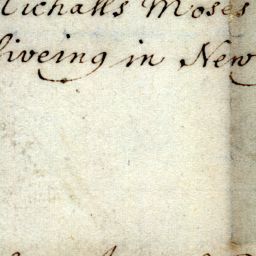 Michalls Moses
liveing in New